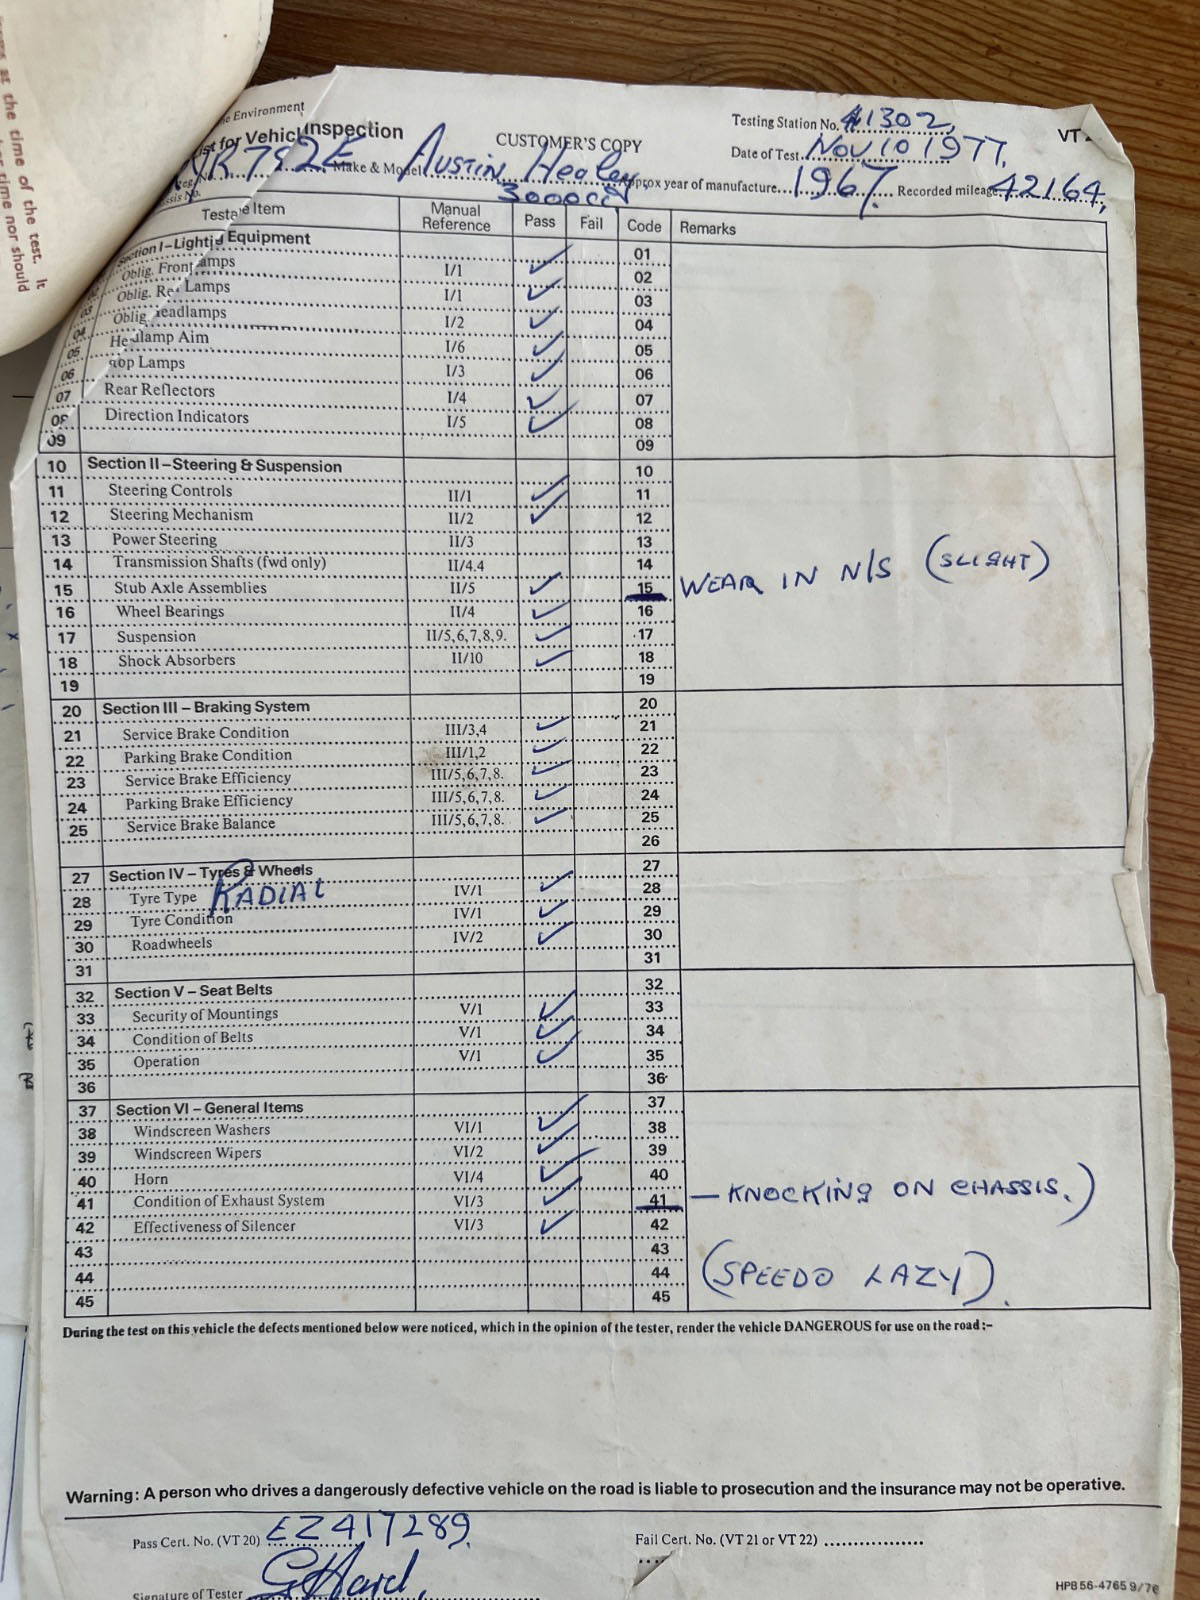 s at the time of the test. It
time nor should
e Environment
ist for Vehicle Inspection
CUSTOMER'S COPY
Testing Station No. 41302
VT
Make & Model Austin Healey 3000cc
Date of Test Nov 10 1977.
Approx year of manufacture 1967. Recorded mileage 42164,
Item Manual Reference Pass Fail Code Remarks
Section I – Lighting Equipment 01
Oblig. Front Lamps I/1 ✓ 02
03 Oblig. Rear Lamps I/1 ✓ 03
04 Oblig. Headlamps I/2 ✓ 04
05 Headlamp Aim I/6 ✓ 05
06 Stop Lamps I/3 ✓ 06
07 Rear Reflectors I/4 ✓ 07
08 Direction Indicators I/5 ✓ 08
09 09
10 Section II – Steering & Suspension 10
11 Steering Controls II/1 ✓ 11
12 Steering Mechanism II/2 ✓ 12
13 Power Steering II/3 13
14 Transmission Shafts (fwd only) II/4.4 14
15 Stub Axle Assemblies II/5 ✓ 15 WEAR IN N/S (SLIGHT)
16 Wheel Bearings II/4 ✓ 16
17 Suspension II/5,6,7,8,9. ✓ 17
18 Shock Absorbers II/10 ✓ 18
19 19
20 Section III – Braking System 20
21 Service Brake Condition III/3,4 ✓ 21
22 Parking Brake Condition III/1,2 ✓ 22
23 Service Brake Efficiency III/5,6,7,8. ✓ 23
24 Parking Brake Efficiency III/5,6,7,8. ✓ 24
25 Service Brake Balance III/5,6,7,8. ✓ 25
26
27 Section IV – Tyres & Wheels 27
28 Tyre Type RADIAL IV/1 ✓ 28
29 Tyre Condition IV/1 ✓ 29
30 Roadwheels IV/2 ✓ 30
31 31
32 Section V – Seat Belts 32
33 Security of Mountings V/1 ✓ 33
34 Condition of Belts V/1 ✓ 34
35 Operation V/1 ✓ 35
36 36
37 Section VI – General Items 37
38 Windscreen Washers VI/1 ✓ 38
39 Windscreen Wipers VI/2 ✓ 39
40 Horn VI/4 ✓ 40
41 Condition of Exhaust System VI/3 ✓ 41 – KNOCKING ON CHASSIS.)
42 Effectiveness of Silencer VI/3 ✓ 42
43 43
44 44 (SPEEDO LAZY).
45 45
During the test on this vehicle the defects mentioned below were noticed, which in the opinion of the tester, render the vehicle DANGEROUS for use on the road:–
Warning: A person who drives a dangerously defective vehicle on the road is liable to prosecution and the insurance may not be operative.
Pass Cert. No. (VT 20) EZ417289. Fail Cert. No. (VT 21 or VT 22)
Signature of Tester
HPB 56-4765 9/76